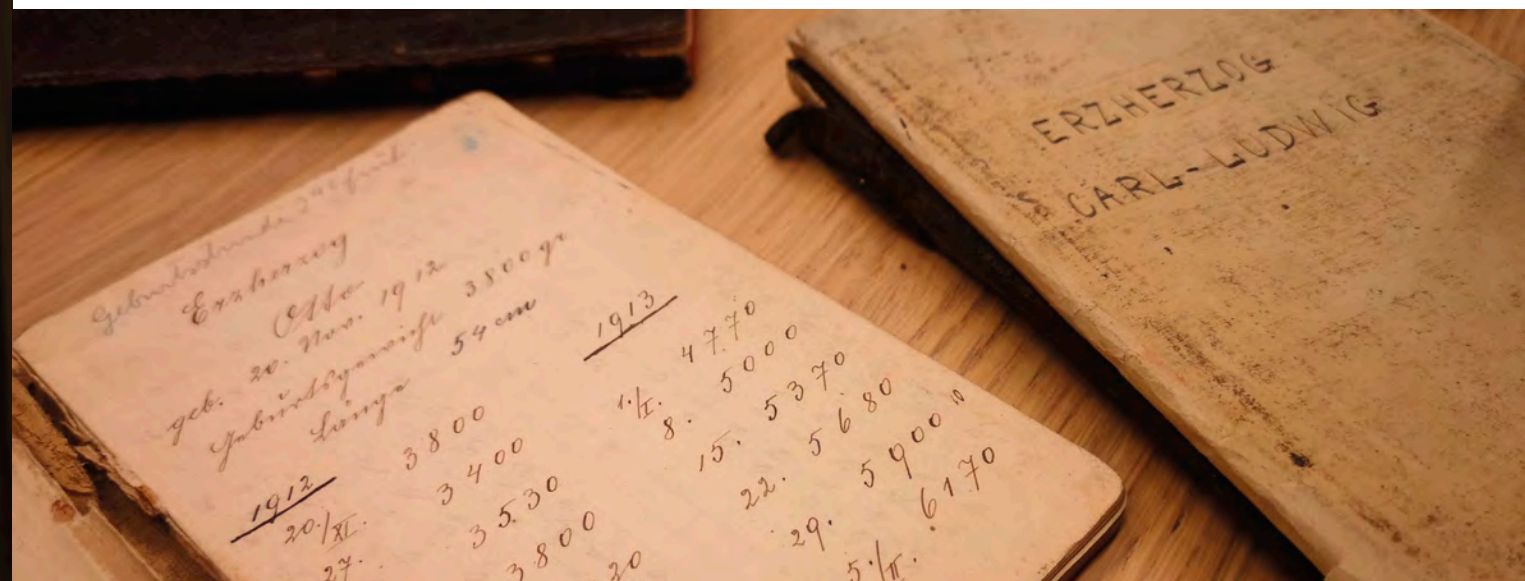 Geburtsstunde 2 45 früh.
Erzherzog
Otto
geb. 20. Nov. 1912
Geburtsgewicht 3800 gr
Länge 54 cm
1912
20./XI. 3800
27. 3400
3530
3800
20
1913
1./I. 4770
8. 5000
15. 5370
22. 5680
29. 5900
5./II. 6170
ERZHERZOG
CARL-LUDWIG